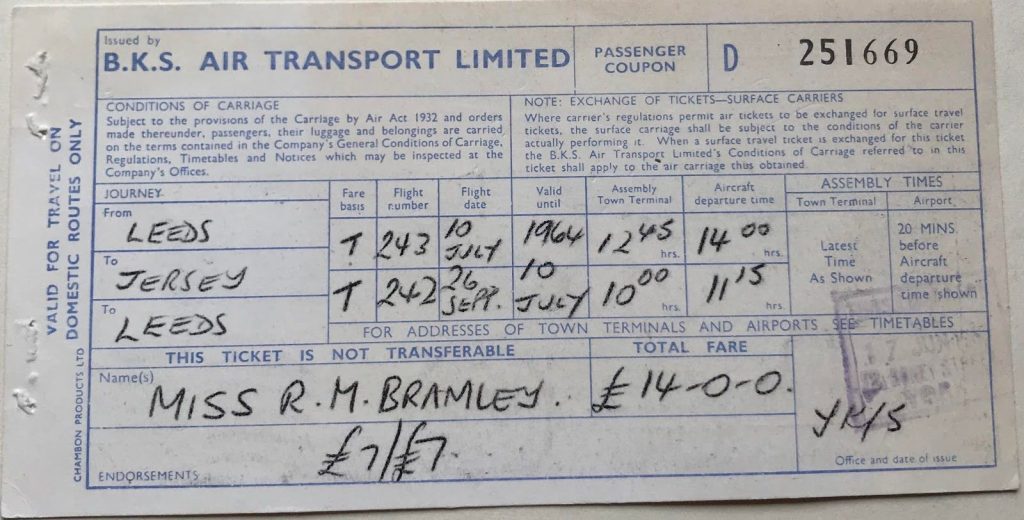 Issued by
B.K.S. AIR TRANSPORT LIMITED
PASSENGER
COUPON
D 251669
CONDITIONS OF CARRIAGE
Subject to the provisions of the Carriage by Air Act 1932 and orders
made thereunder, passengers, their luggage and belongings are carried
on the terms contained in the Company's General Conditions of Carriage,
Regulations, Timetables and Notices which may be inspected at the
Company's Offices.
NOTE: EXCHANGE OF TICKETS—SURFACE CARRIERS
Where carrier's regulations permit air tickets to be exchanged for surface travel
tickets, the surface carrier shall be subject to the conditions of the carrier
actually performing it. When a surface travel ticket is exchanged for this ticket
the B.K.S. Air Transport Limited's Conditions of Carriage referred to in this
ticket shall apply to the air carriage thus obtained.
VALID FOR TRAVEL ON
DOMESTIC ROUTES ONLY
CHAMBON PRODUCTS LTD
JOURNEY
Fare basis
Flight number
Flight date
Valid until
Assembly Town Terminal
Aircraft departure time
ASSEMBLY TIMES
Town Terminal
Airport
From
LEEDS
T 243 10 JULY 1964 12 45 hrs. 14 00 hrs.
To
JERSEY
T 242 26 SEPT. 10 JULY 10 00 hrs. 11 15 hrs.
To
LEEDS
Latest
Time
As Shown
20 MINS
before
Aircraft
departure
time shown
FOR ADDRESSES OF TOWN TERMINALS AND AIRPORTS SEE TIMETABLES
THIS TICKET IS NOT TRANSFERABLE
TOTAL FARE
Name(s)
MISS R. M. BRAMLEY.
£14-0-0.
£7/£7.
YK/S
ENDORSEMENTS
Office and date of issue